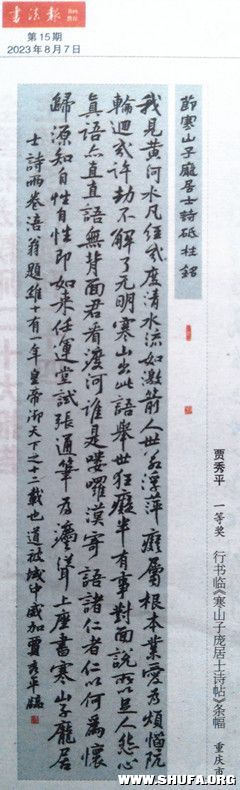 書法報
第15期
2023年8月7日
節寒山子龐居士詩砥柱銘
我見黄河水凡經幾度清水流如激箭人世若浮萍癡屬根本業愛為煩惱阬
輪迴幾许劫不解了无明寒山出此語舉世狂癡半有事對面說所以足人怨心
真語亦直直語無背面君看渡河誰是嘍囉漢寄語諸仁者仁以何為懷
歸源知自性自性即如来任運堂試張通筆為灋聳上座書寒山子龐居
士詩兩卷涪翁題維十有一年皇帝御天下之十二載也道被域中威加賈秀平臨
贾秀平 一等奖 行书临《寒山子庞居士诗帖》条幅 重庆市
WWW.SHUFA.ORG